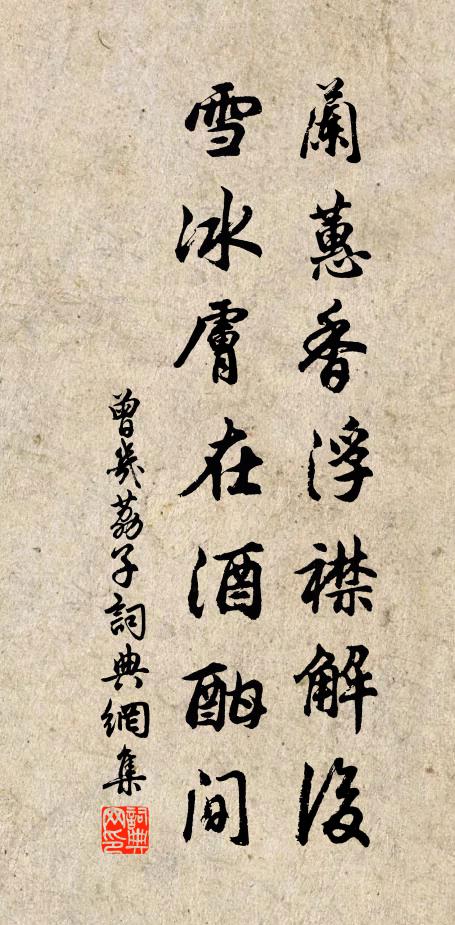 蘭蕙香浮襟解後
雪冰膚在酒酣间
曾幾荔子詞典網集
詞典
网印